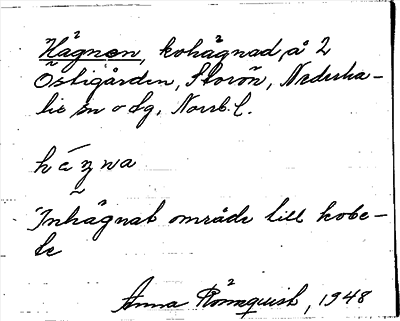 Hägnan, kohägnad, å 2
Östigården, Storön, Nederka-
lix sn o dg, Norrb. l.
Inhägnat område till kobe-
te
Anna Rönnquist, 1948